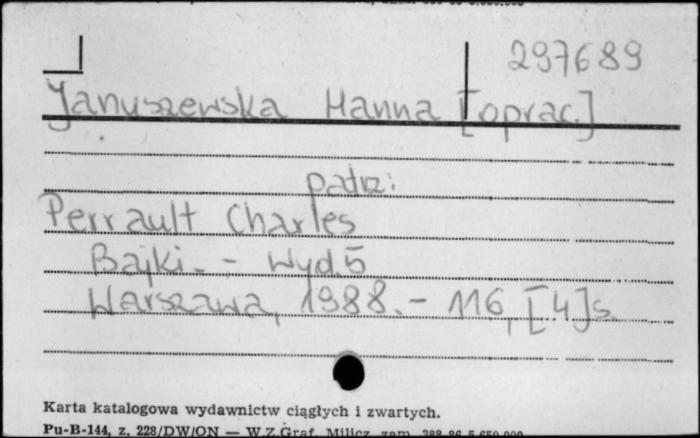 297689
Januszewska Hanna [oprac.]
patrz:
Perrault Charles
Bajki. - Wyd. 5
Warszawa, 1988. - 116, [4] s.
Karta katalogowa wydawnictw ciągłych i zwartych.
Pu-B-144, z. 228/DW/ON — W.Z.Graf. Milicz, zam.